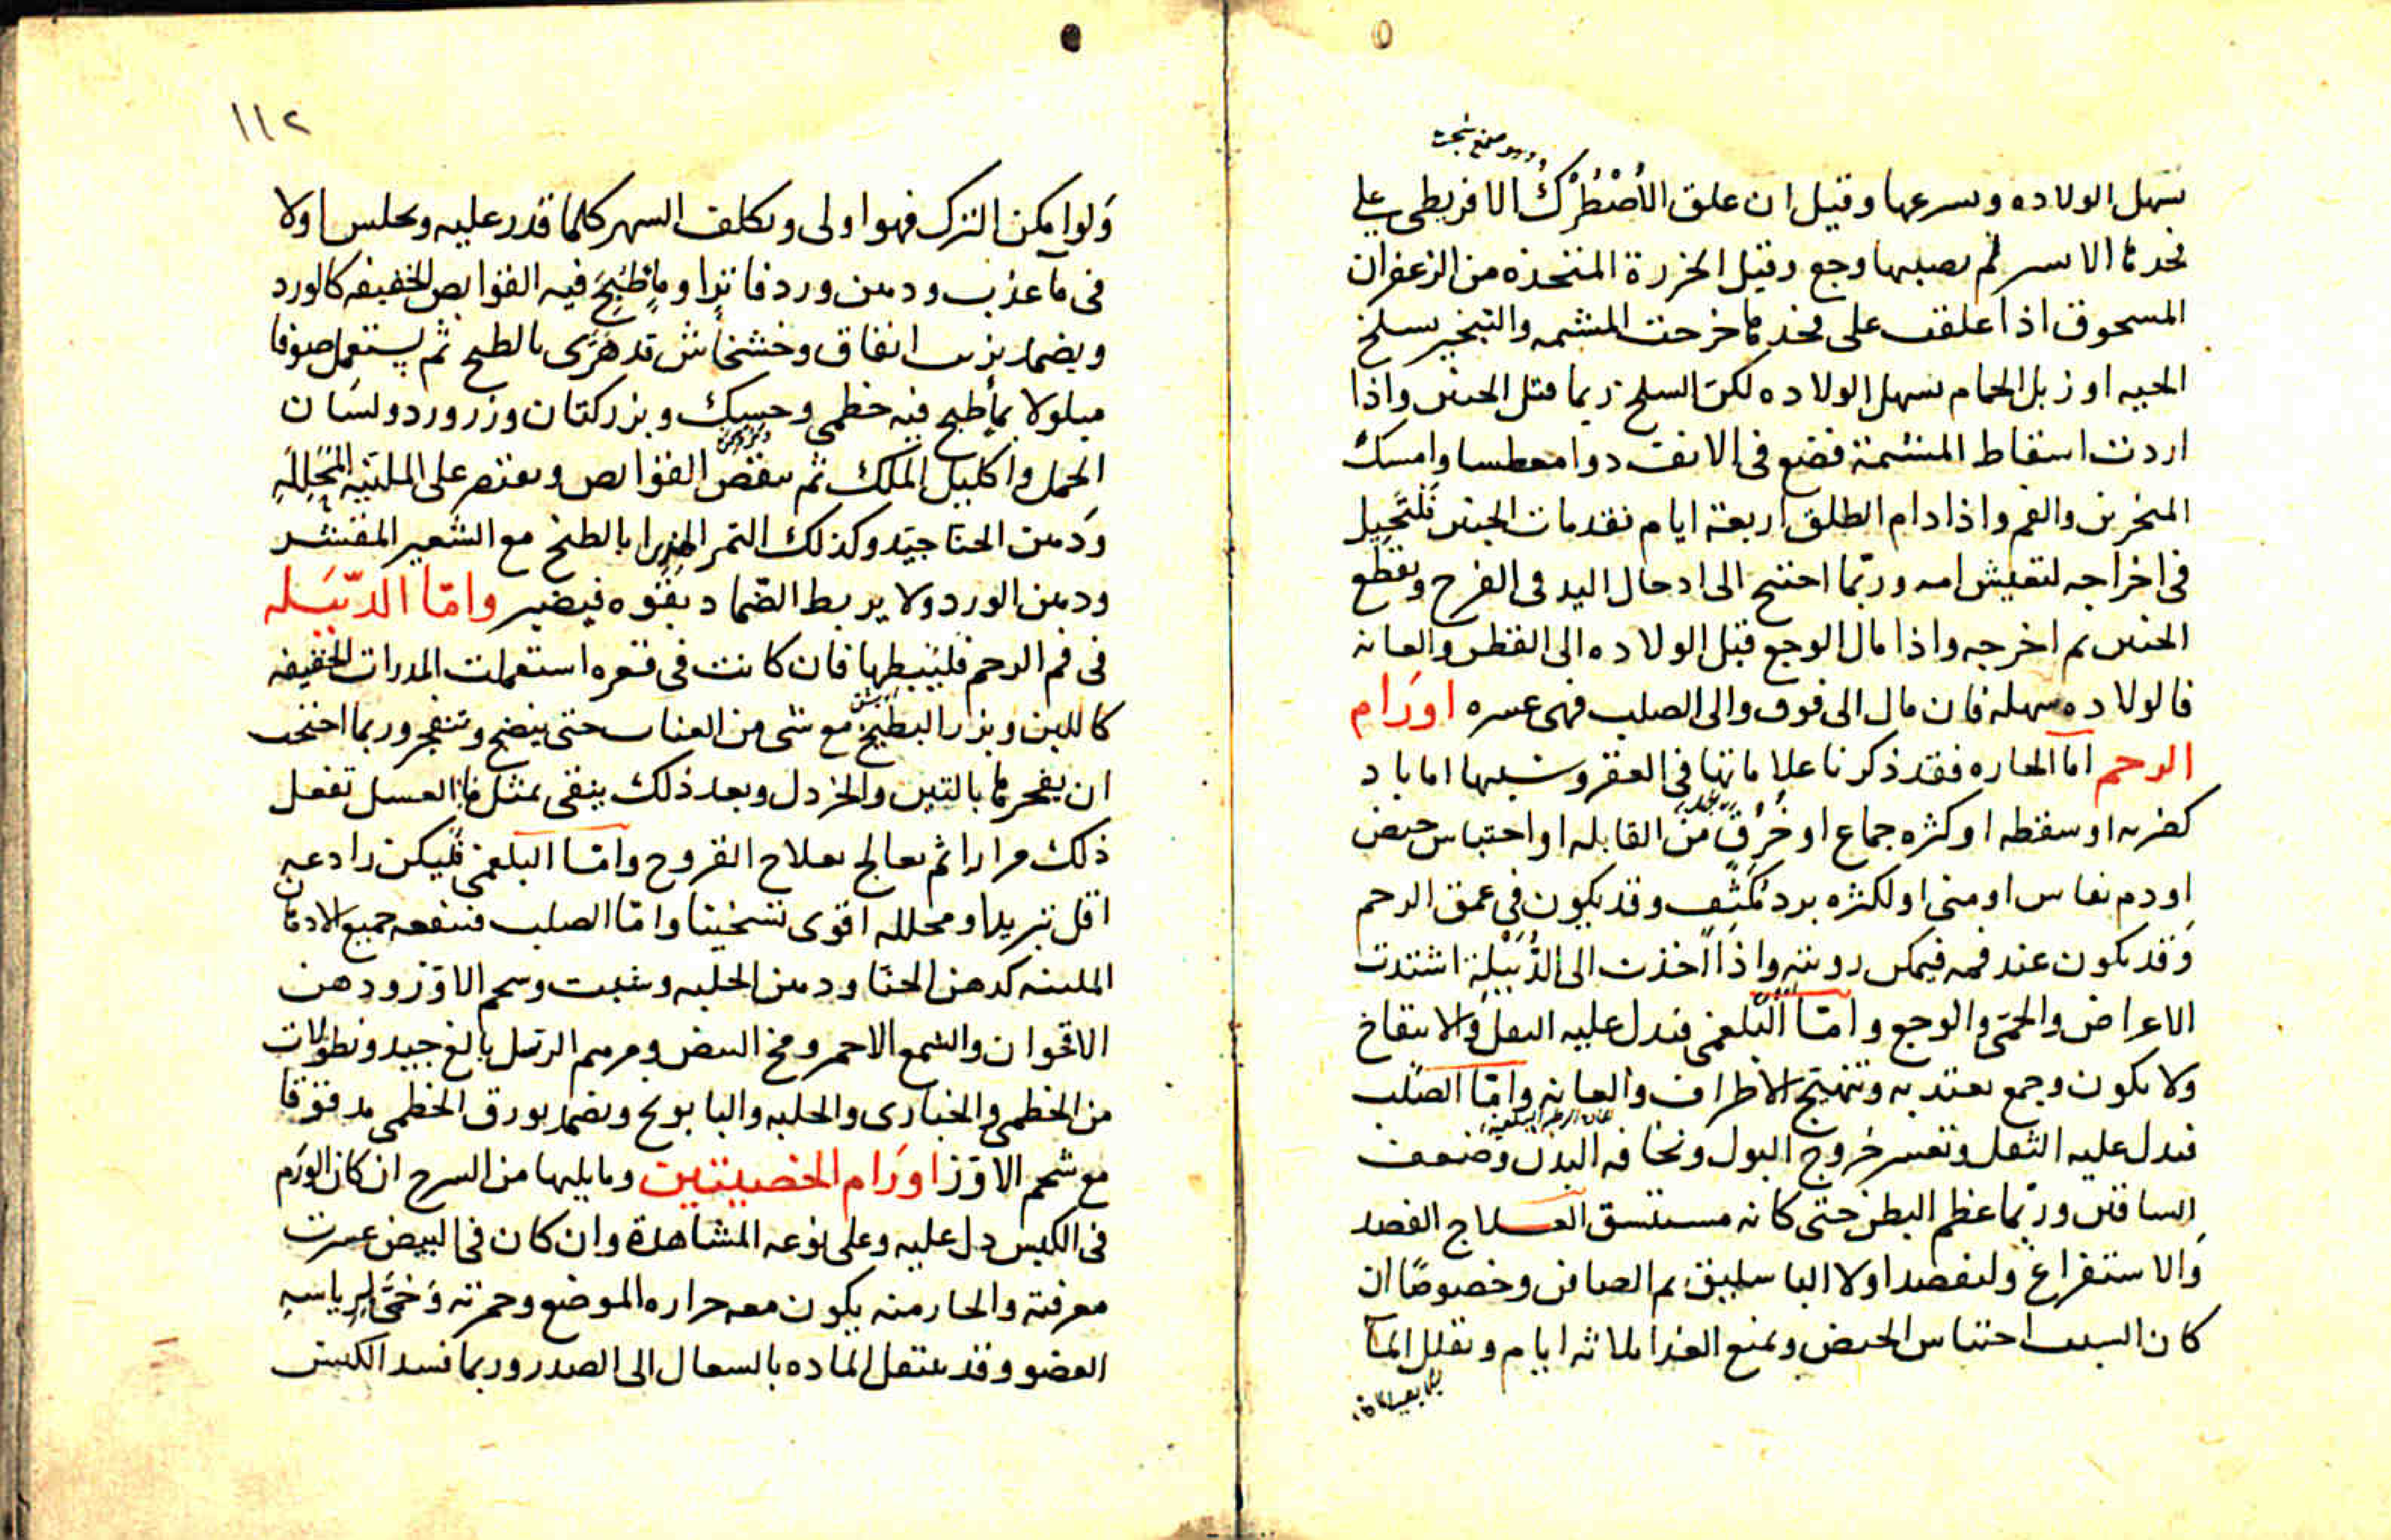 سهل الولاده وسرعها وقيل ان علق الأُصْطُرْكُ الافريطى على
فخدها الاسر لم يصبها وجع وقيل الخرزة المتخذه من الزعفران
المسحوق اذا علقت على فخدها خرجت المشمه والتبخير بسلخ
الحيه او زبل الحمام سهل الولاده لكن السلخ ربما قتل الجنين واذا
اردت اسقاط المشمة فضع فى الانف دوا معطسا وامسك
المنخرين والفم واذا دام الطلق اربعة ايام فقد مات الجنين فلتَحِيل
فى اخراجه لتعيش امه وربّما احتيج الى ادخال اليد فى الفرج وتقطع
الجنين ثم اخرجه واذا مال الوجع قبل الولاده الى القطن والعانه
فالولاده سهله فان مال الى فوق والى الصلب فهى عسره اورَام
الرحم اما الحاره فقد ذكرنا علاماتها فى العقر وسببها اما باد
كضربه او سقطه او كثره جماع او خُرْق من القابله او احتباس حيض
او دم نفاس او منى او لكثره برد مُكَثِّف وقد يكون فى عمق الرحم
وَقد يكون عند فمه فيمكن رويته واذا اخذت الى الدُّبَيْلة اشتدت
الاعراض والحمّى والوجع وامّا البَلغمى فيدل عليه الثقل والانتفاخ
ولا يكون وجع يعتد به وتهيّج الاطراف والعانه وامّا الصّلب
فيدل عليه الثقل وتعسر خروج البول ونحافه البدن وضعف
الساقين وربّما عظم البطن حتى كانه مستسق العـلاج الفصد
وَالاستفراغ وليفصد اولا الباسليق ثم الصافن وخصوصًا ان
كان السبب احتباس الحيض ويمنع الغذا ثلاثه ايام وتقلل المآ
١١٢
وَلو امكن الترك فهو اولى ويكلف السهر كلما قدر عليه ويجلس اولا
فى مآ عذب ودهن ورد فاترا وما طُبِخَ فيه القوابض الخفيفه كالورد
ويضمد بزيت انفاق وخشخاش قد هَرّى بالطبخ ثم يستعمل صوفا
مبلولا بمأ طبخ فيه خطمى وحسك وبزر كتان وزر ورد ولسَان
الحمل واكليل الملك ثم ينقص القوابض ويقتصر على الملينه المُحَلِلَه
وَدهن الحنا جيّد وكذلك التمر المهرا بالطبخ مع الشعير المقشر
ودهن الورد ولا يربط الضّماد بقوه فيضير وامّا الدّبيَله
فى فم الرحم فليُبَطها فان كانت فى قعره استعملت المدرات الخفيفه
كاللبن وبزر البطيخ مع شى من العناب حتى ينضج وتنفجر وربما احتجت
ان يفجرها بالتين والخردل وبعد ذلك ينقى بمثل مآ العسل تفعل
ذلك مرارا ثم يعالج بعلاج القروح وامّا البلغمى فليكن رادعه
اقل تبريدا ومحلله اقوى تسخينا وامّا الصلب فينفعه جميع الادهان
الملينه كدهن الحنّا ودهن الحلبه وشبت وشحم الاوّز ودهن
الاقحوان والشمع الاحمر ومخ البيض ومرهم الرسل بالغ جيد ونطولات
من الخطمى والخبازى والحلبه والبابونج ويضمد بورق الخطمى مدقوقا
مع شحم الاوّز اورَام الخصيتين وما يليها من السرح ان كان الورَم
فى الكيس دل عليه وعلى نوعه المشاهدة وان كان فى البيض عسرت
معرفته والحار منه يكون معه حراره الموضع وحمرته وَحمَّى لِرياسه
العضو وقد ينتقل الماده بالسعال الى الصدر وربما فسد الكيس